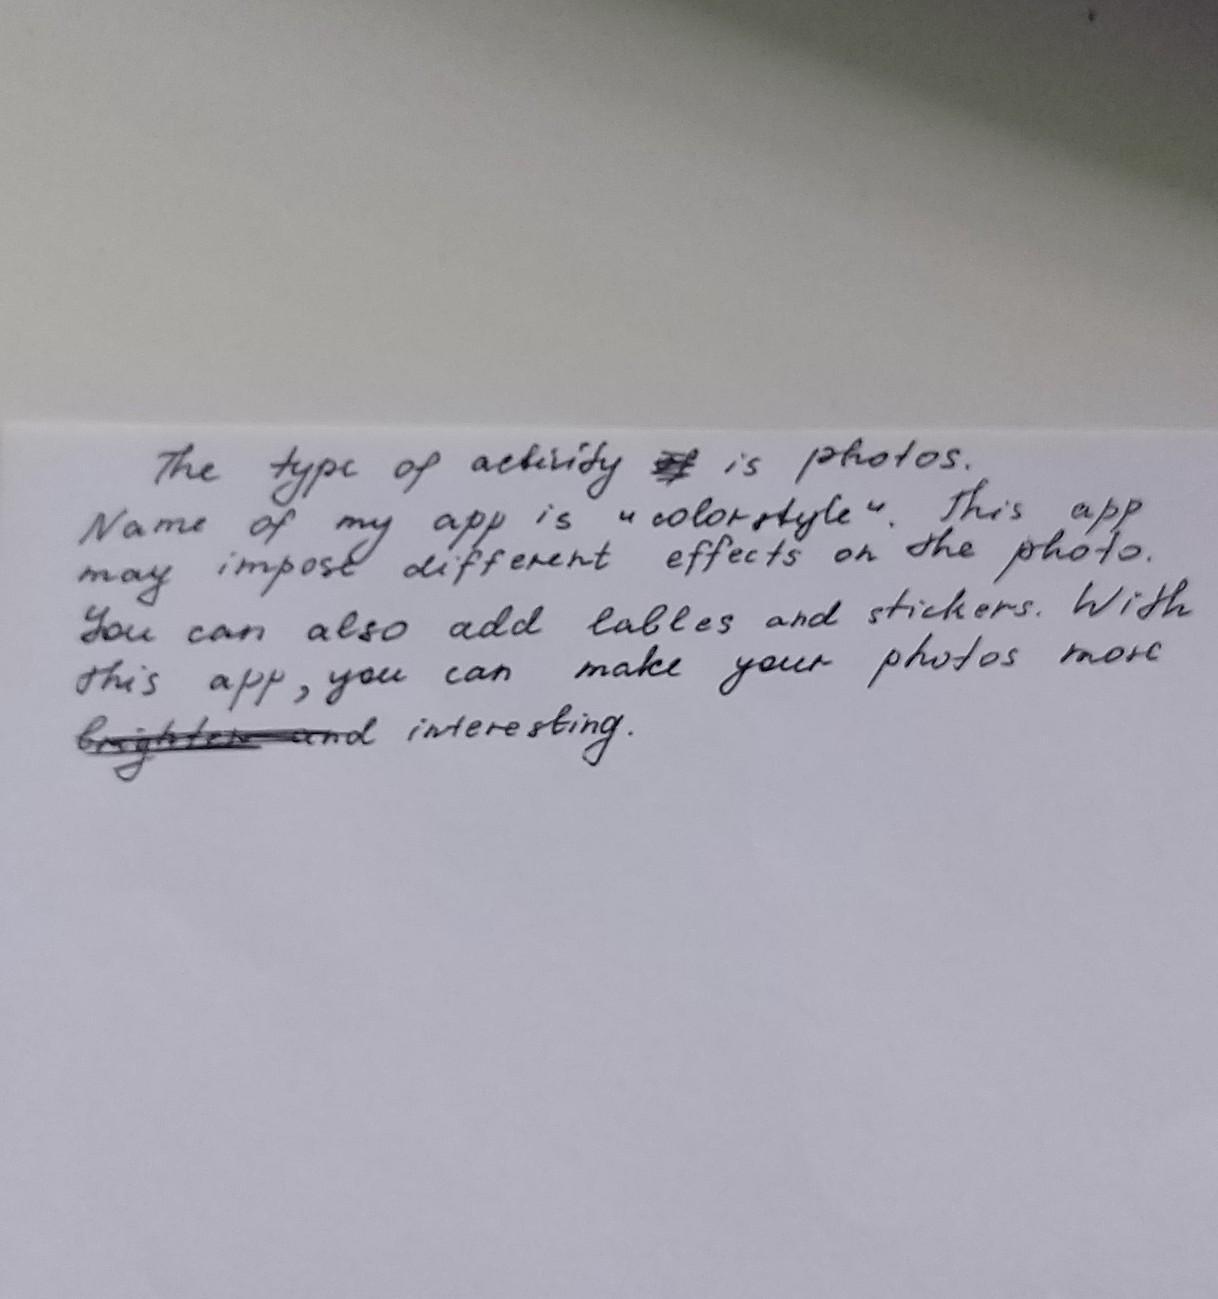 The type of activity is photos.
Name of my app is "colorstyle". This app
may impose different effects on the photo.
You can also add lables and stickers. With
this app, you can make your photos more
brighter and interesting.